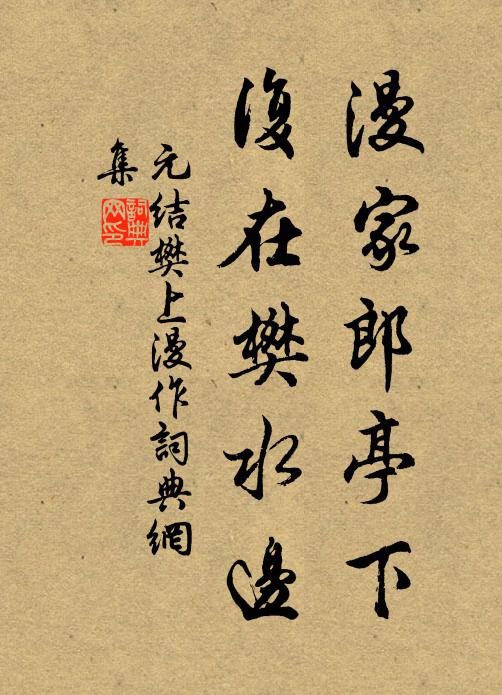 漫家郎亭下
復在樊水邊
元结樊上漫作詞典網
集
詞典网印